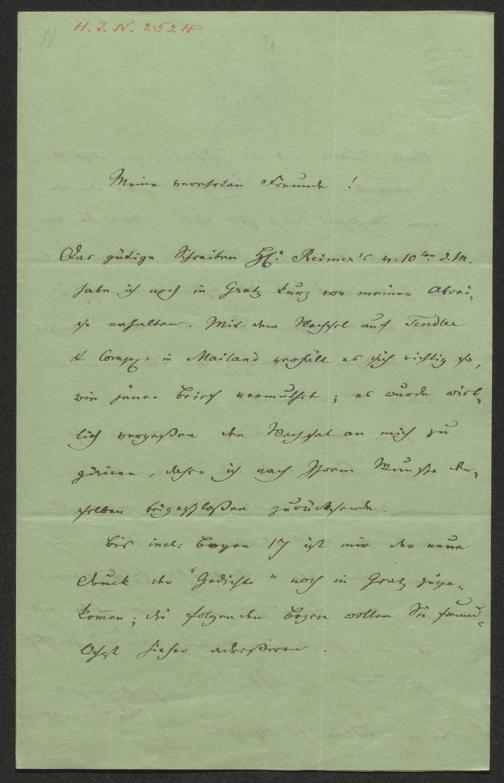 H. I. N. 2524
21
Meine verehrten Freunde !
Das gütige Schreiben H. Reimer's v. 10ten d. M.
habe ich noch in Gratz kurz vor meiner Abrei-
se erhalten. Mit dem Wechsel auf Tendler
& Comp. in Mailand verhält es sich richtig so,
wie jener Brief vermuthet ; es wurde wirk-
lich vergeßen den Wechsel an mich zu
giriren, daher ich nach Ihrem Wunsche den-
selben beigeschloßen zurücksende.
Bis incl: Bogen 17 ist mir der neue
Druck der "Gedichte" noch in Gratz zuge-
kom̄en ; die folgenden Bogen wollen Sie freund-
lichst hieher adreßiren .